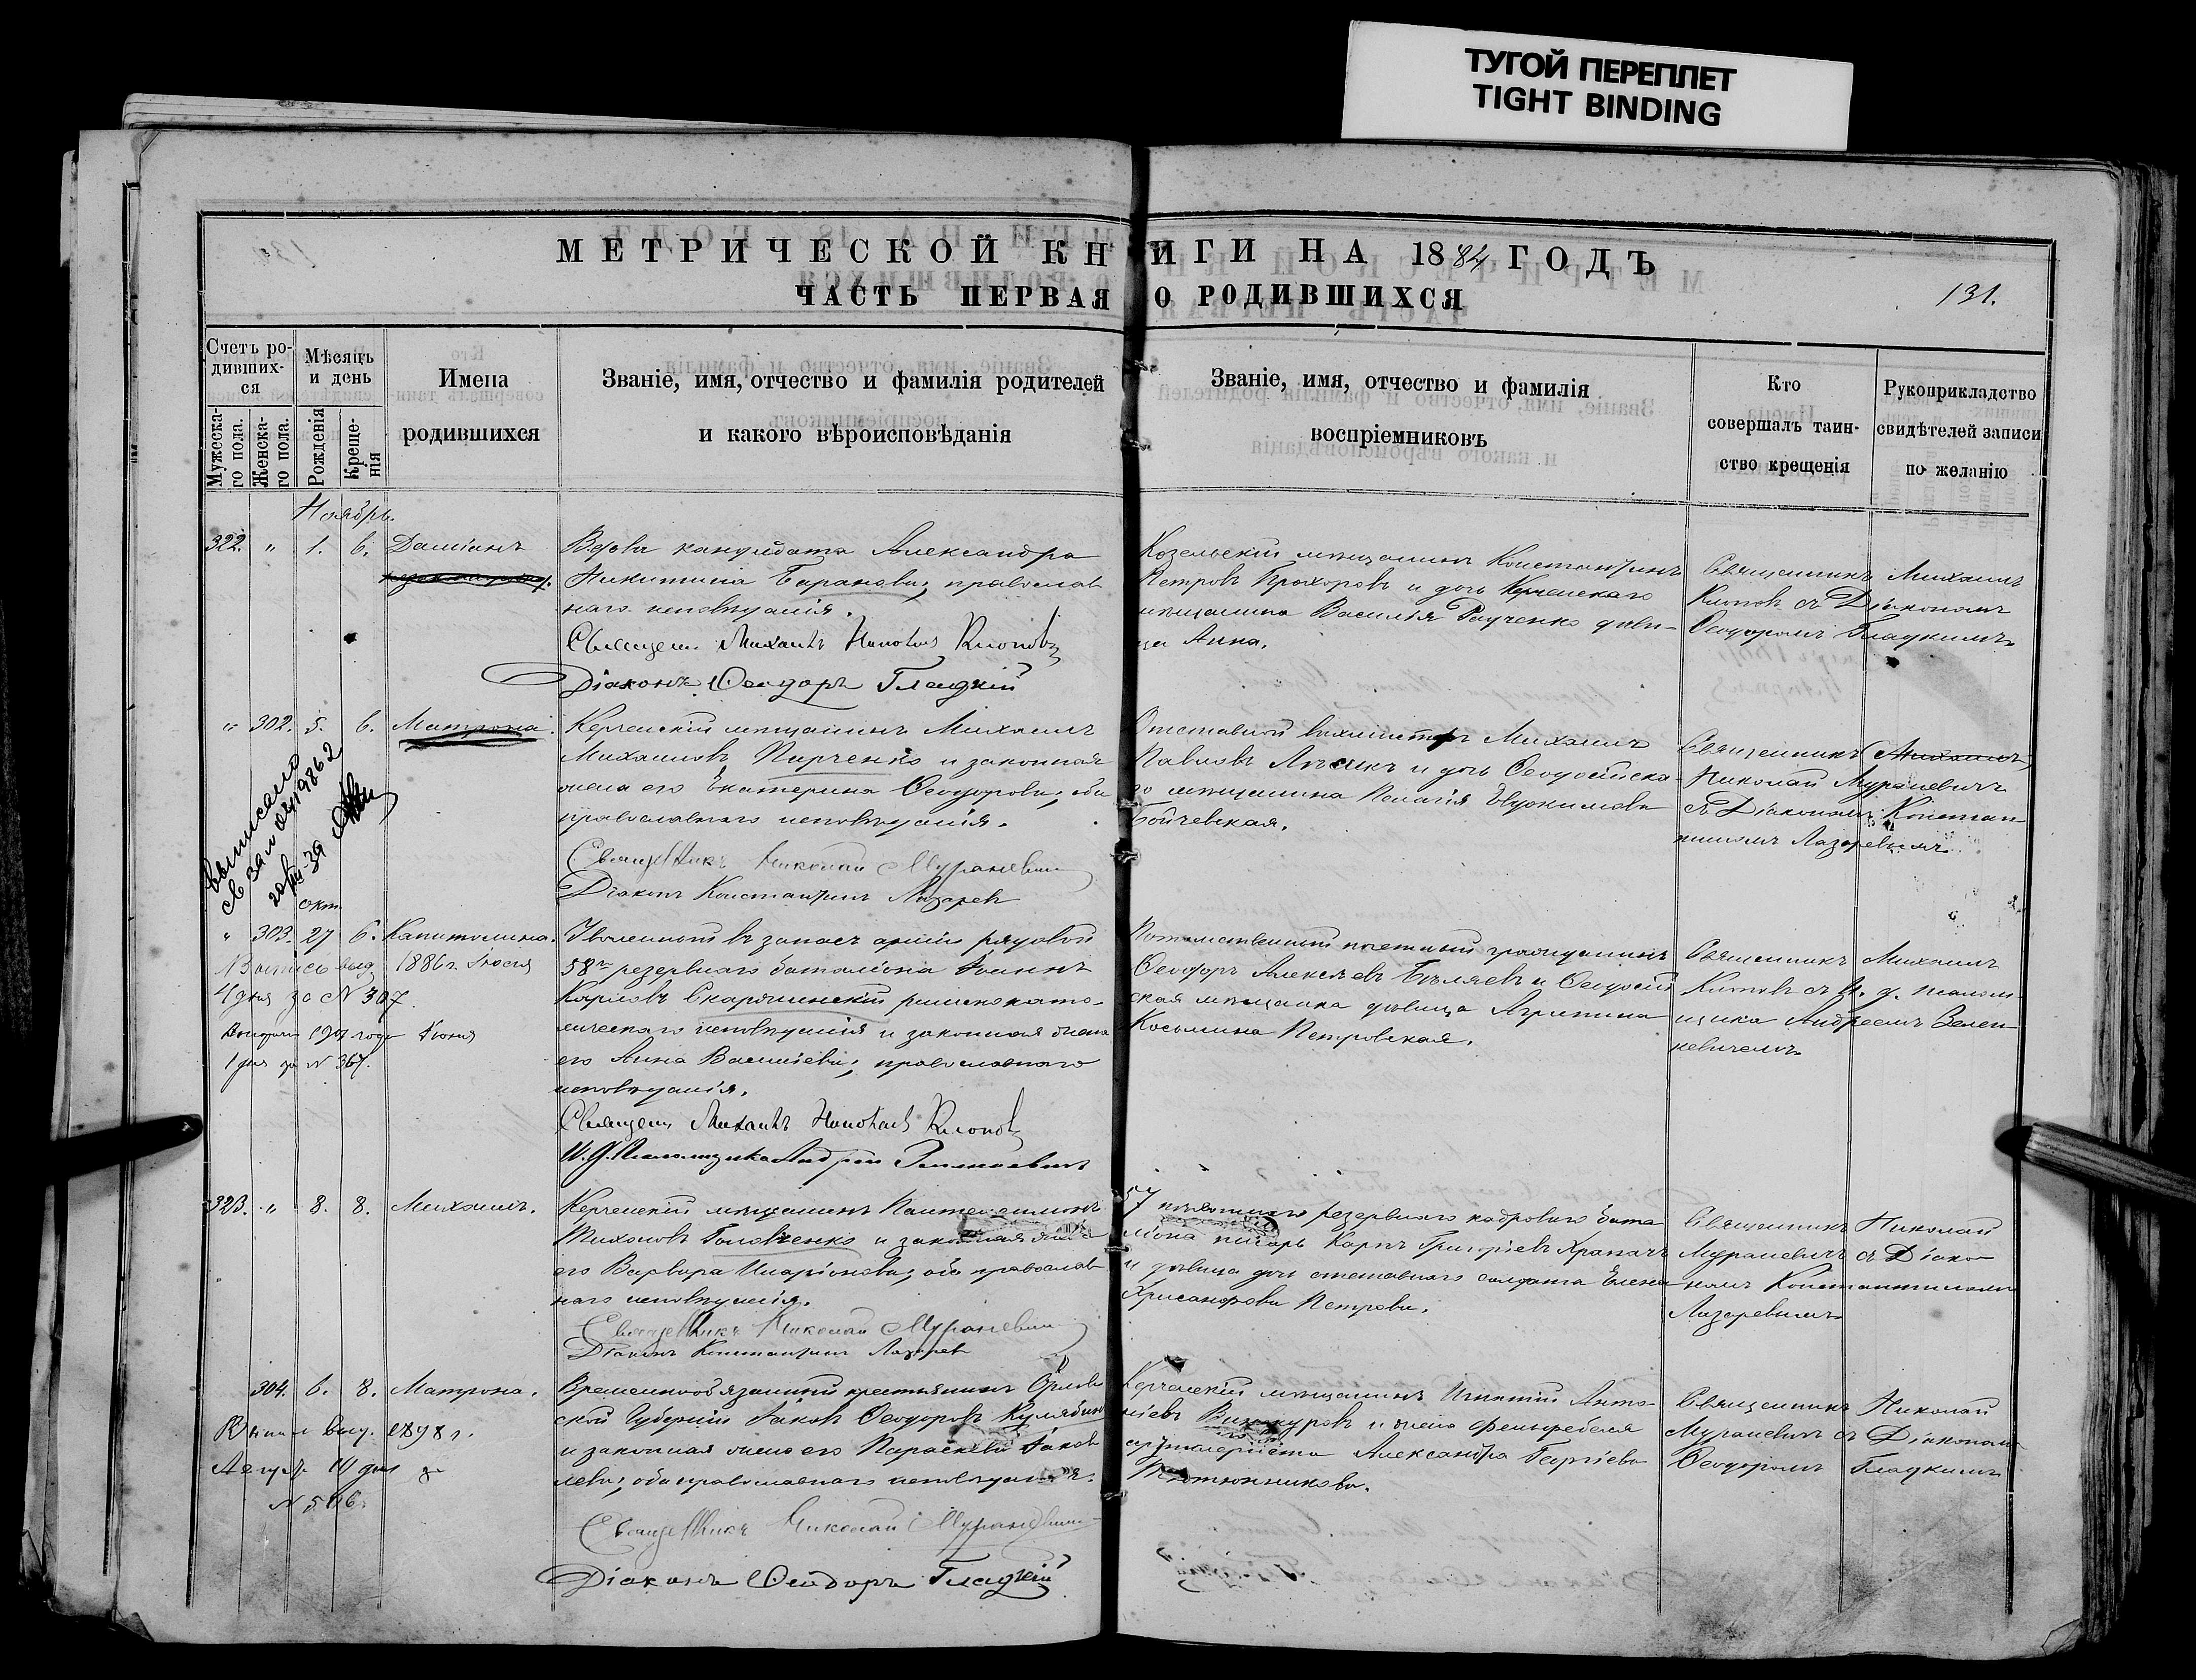 ТУГОЙ ПЕРЕПЛЕТ
TIGHT BINDING
МЕТРИЧЕСКОЙ КНИГИ НА 1884 ГОДЪ
ЧАСТЬ ПЕРВАЯ О РОДИВШИХСЯ
131.
Счетъ ро-
дивших-
ся
Мужеска-
го пола.
Женска-
го пола.
Мѣсяцъ
и день
Рожденія
Креще-
нія
Имена
родившихся
Званіе, имя, отчество и фамилія родителей
и какого вѣроисповѣданія
Званіе, имя, отчество и фамилія
воспріемниковъ
Кто
совершалъ таин-
ство крещенія
Рукоприкладство
свидѣтелей записи
по желанію
Ноябрь.
322. " 1. 6. Даміанъ
Вдовы кандидата Александра
Никитина Баранова, православ
наго исповѣданія.
Священ. Михаилъ Клоповъ
Діаконъ Ѳеодоръ Гладкій
Козельскій мѣщанинъ Константинъ
Петровъ Прохоровъ и дочь Керченскаго
мѣщанина Василія Радченко дѣви-
ца Анна.
Священникъ Михаилъ
Клоповъ съ Діакономъ
Ѳеодоромъ Гладкимъ
" 302. 5. 6. Матрона.
Керченскій мѣщанинъ Михаилъ
Михаиловъ Парченко и законная
жена его Екатерина Ѳеодорова, оба
православнаго исповѣданія.
Священникъ Николай Мураневичъ
Діаконъ Константинъ Лазаревъ
Отставной вахмистръ Михаилъ
Павловъ Лясикъ и дочь Ѳеодосійска-
го мѣщанина Пелагія Евдокимова
Бойчевская.
Священникъ Михаилъ
Николай Мураневичъ
съ Діакономъ Констан-
тиномъ Лазаревымъ
выписано
окт.
" 303. 27 6. Капитолина.
Уволенный въ запасъ арміи рядовой
58го резервнаго баталіона Іоаннъ
Карловъ Скаржинскій римско като-
лическаго исповѣданія и законная жена
его Анна Василіева, православнаго
исповѣданія.
Священ. Михаилъ Клоповъ
И. д. Псаломщика Андрей Зеленкевичъ
Потомственный почетный гражданинъ
Ѳеодоръ Алексѣевъ Бѣляевъ и Ѳеодосій
ская мѣщанка дѣвица Агрипина
Косьмина Петровская.
Священникъ Михаилъ
Клоповъ съ и. д. псалом-
щика Андреемъ Зелен-
кевичемъ
Выпись выд. 1886 г. Іюня
4 дня за № 307.
1907 года Іюня
1 дня за № 367.
323. " 8. 8. Михаилъ.
Керченскій мѣщанинъ Пантелеимонъ
Тихоновъ Головченко и законная жена
его Варвара Иларіонова, оба православ
наго исповѣданія.
Священникъ Николай Мураневичъ
Діаконъ Константинъ Лазаревъ
57 пѣхотнаго резервнаго кадроваго бата
ліона писарь Карпъ Григоріевъ Храпачъ
и дѣвица дочь отставнаго солдата Елена
Хрисанфова Петрова.
Священникъ Николай
Мураневичъ съ Діако-
номъ Константиномъ
Лазаревымъ
304. 6. 8. Матрона.
Временнообязанный крестьянинъ Орлов
ской Губерніи Іаковъ Ѳеодоровъ Кулябинъ
и законная жена его Параскева Іаков
лева, оба православнаго исповѣданія.
Священникъ Николай Мураневичъ
Діаконъ Ѳеодоръ Гладкій
Керченскій мѣщанинъ Игнатій Анто-
ніевъ Винокуровъ и жена фельдфебеля
артиллериста Александра Георгіева
Священникъ Николай
Мураневичъ съ Діакономъ
Ѳеодоромъ Гладкимъ
выд. 1898 г.
Август. 14 дня за